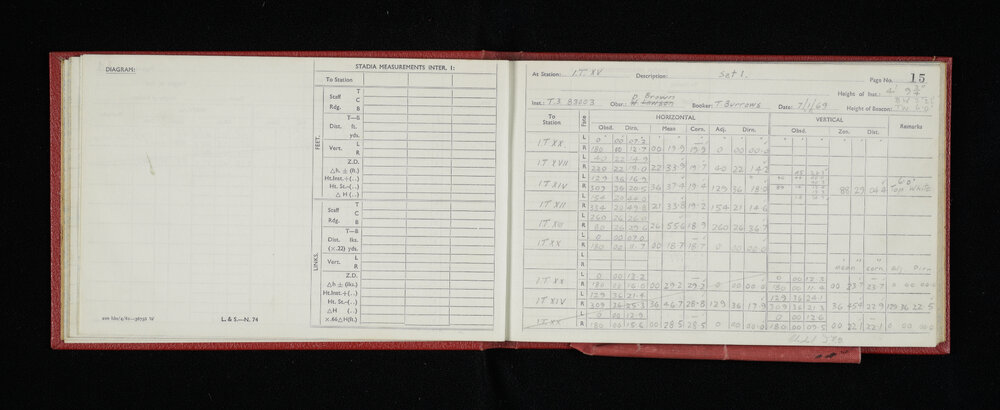 DIAGRAM:
STADIA MEASUREMENTS (INTER. 1:
To Station
FEET.
Staff T
C
Rdg. B
T—B
Dist. ft.
yds.
Vert. L
R
Z.D.
△h ± (ft.)
Ht.Inst.+(...)
Ht. St.-(...)
△ H (...)
LINKS.
Staff T
C
Rdg. B
T—B
Dist. lks.
(×.22) yds.
Vert. L
R
Z.D.
△h ± (lks.)
Ht.Inst+(...)
Ht. St.-(...)
△H (...)
×.66△H(ft.)
L. & S.—N. 74
At Station: I.T. XV Description: Set 1. Page No. 15
Height of Inst.: 4' 9 3/4"
Inst.: T.3 83003 Obsr.: D. Brown W. Lawson Booker: T. Burrows Date: 7/1/69 Height of Beacon:
To Station Face HORIZONTAL VERTICAL Remarks
Obsd. Dirn. Mean Corn. Adj. Dirn. Obsd. Zen. Dist.
I.T XX L 0 00 07.2
R 180 00 12.7 00 19.9 19.9 0 00 00.0
I.T XVII L 40 22 14.9
R 220 22 19.0 22 33.9 19.7 40 22 14.2
I.T XIV L 129 36 16.9
R 309 36 20.5 36 37.4 19.4 129 36 18.0 88 29 04.4 6'0" Top White
I.T XII L 154 20 44.0
R 334 20 49.8 21 33.8 19.2 154 21 14.6
I.T. XIII L 260 26 26.0
R 80 26 29.6 26 55.6 18.9 260 26 36.7
I.T XX L 0 00 07.0
R 180 00 11.7 00 18.7 18.7 0 00 00.0
mean corn adj Dirn
I.T XX L 0 00 13.2 0 00 12.3
R 180 00 16.0 00 29.2 29.2 0 00 00.0 180 00 11.4 00 23.7 23.7 0 00 00.0
I.T XIV L 129 36 21.4 129 36 24.1
R 309 36 25.3 36 46.7 28.8 129 36 17.9 309 36 21.3 36 45.4 22.9 129 36 22.5
I.T XX L 0 00 12.9 0 00 12.6
R 180 00 15.6 00 28.5 28.5 0 00 00.0 180 00 09.5 00 22.1 22.1 0 00 00.0